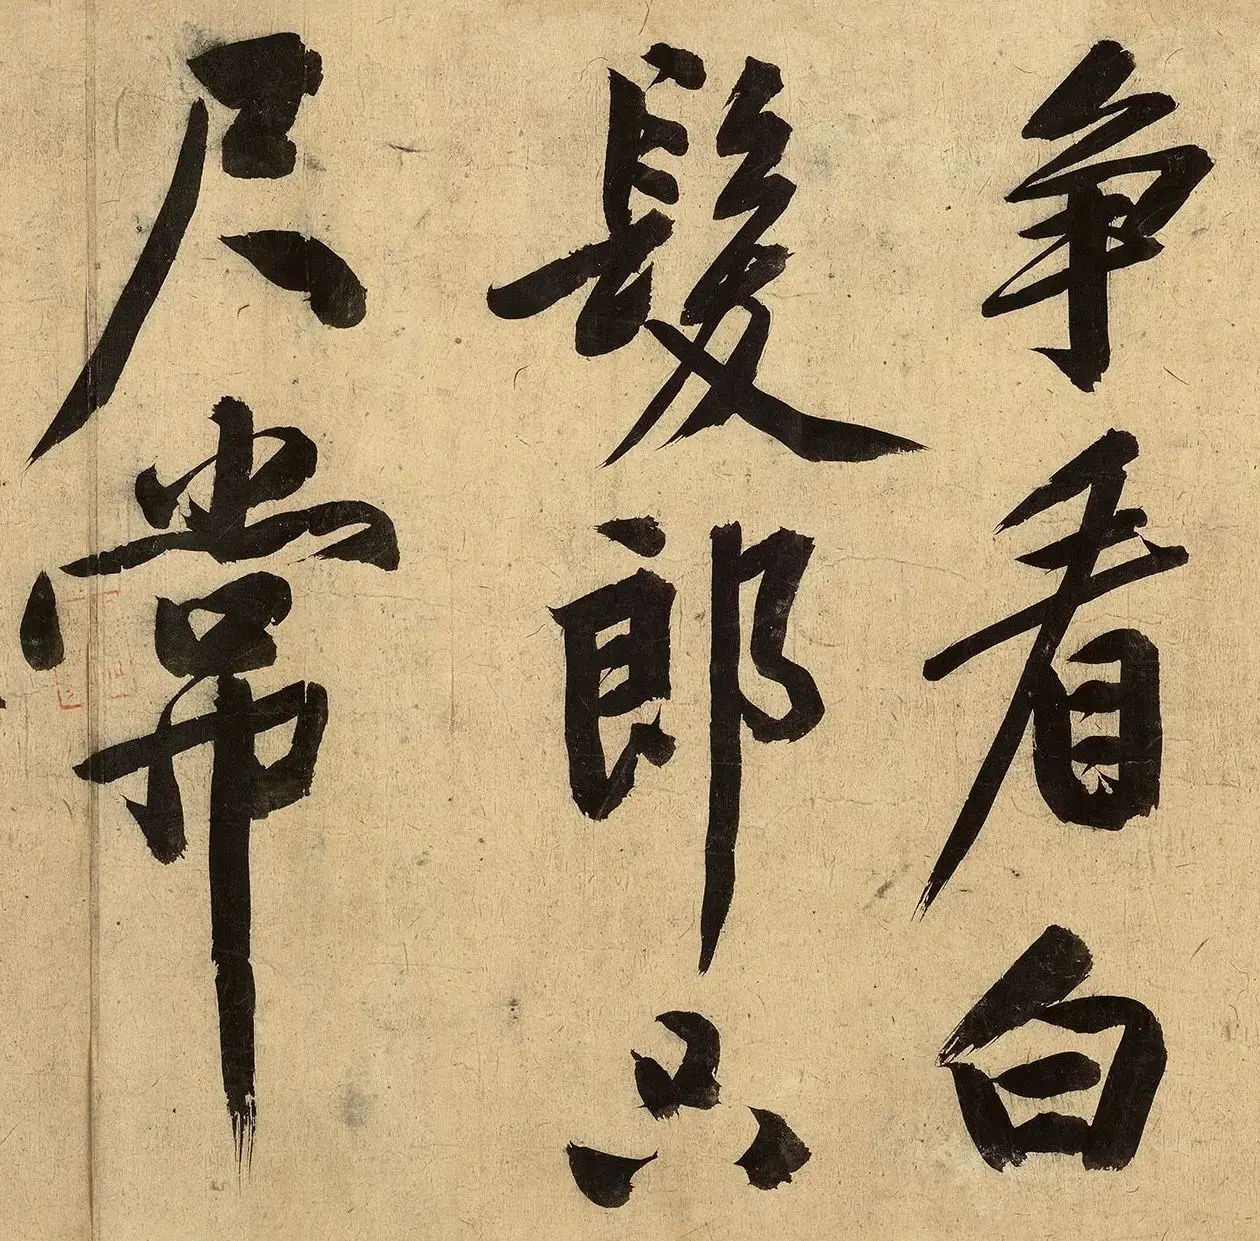 争看白
髮郎只
尺常